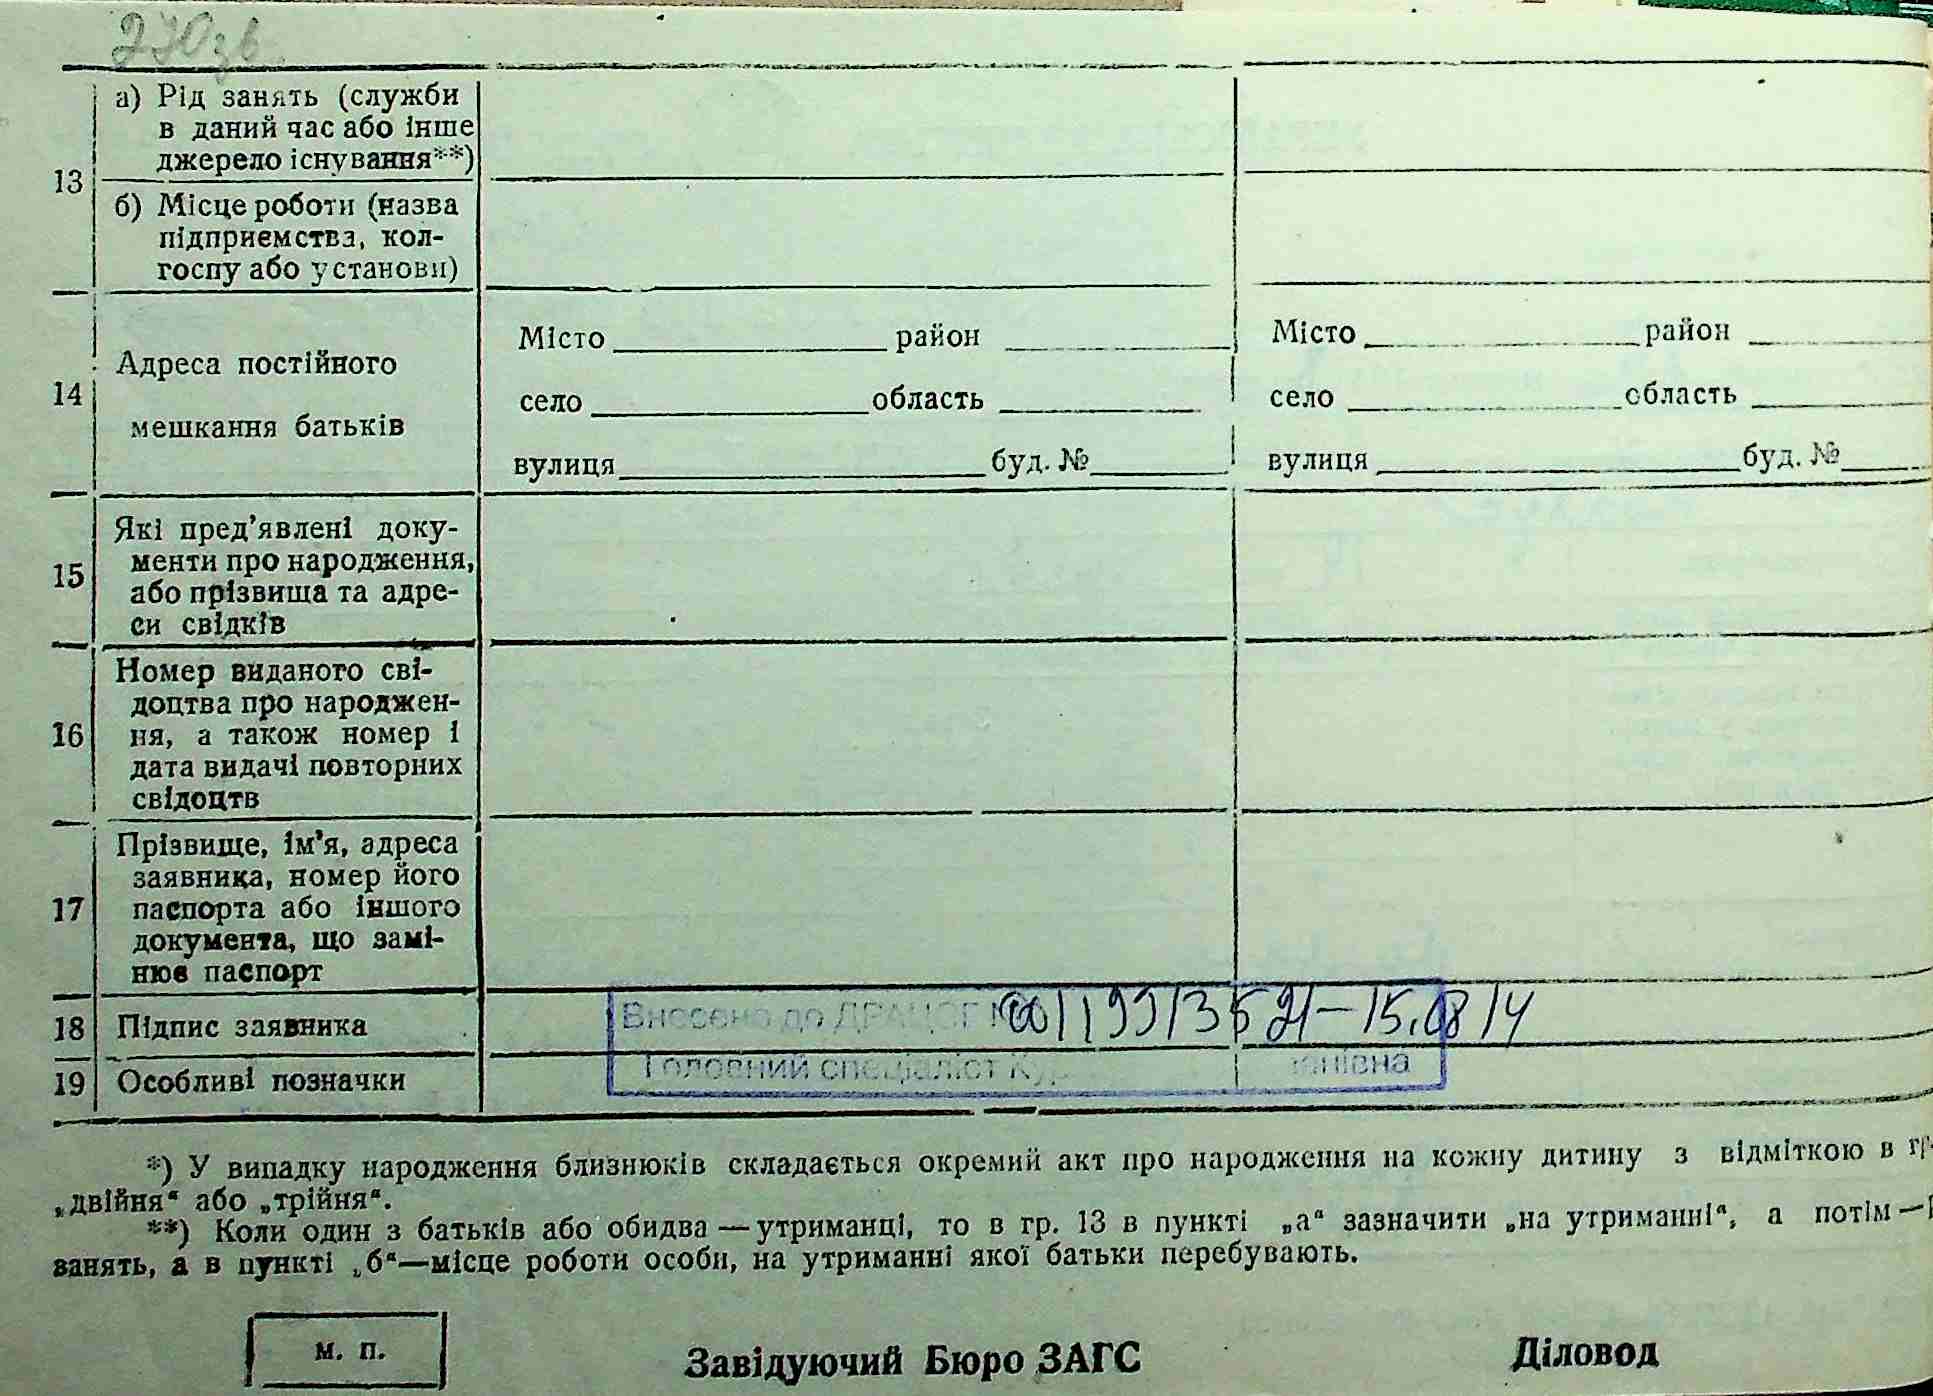 270зв
13
а) Рід занять (служби
в даний час або інше
джерело існування**)
б) Місце роботи (назва
підприємства, кол-
госпу або установи)
14
Адреса постійного
мешкання батьків
Місто район
село область
вулиця буд. №
Місто район
село область
вулиця буд. №
15
Які пред’явлені доку-
менти про народження,
або прізвища та адре-
си свідків
16
Номер виданого сві-
доцтва про народжен-
ня, а також номер і
дата видачі повторних
свідоцтв
17
Прізвище, ім’я, адреса
заявника, номер його
паспорта або іншого
документа, що замі-
нює паспорт
18 Підпис заявника
Внесено до ДРАЦСГ № 00119913521-15.08 14
19 Особливі позначки
Головний спеціаліст
*) У випадку народження близнюків складається окремий акт про народження на кожну дитину з відміткою в гр
„двійня“ або „трійня“.
**) Коли один з батьків або обидва — утриманці, то в гр. 13 в пункті „а“ зазначити „на утриманні“, а потім —
занять, а в пункті „б“—місце роботи особи, на утриманні якої батьки перебувають.
м. п.
Завідуючий Бюро ЗАГС
Діловод